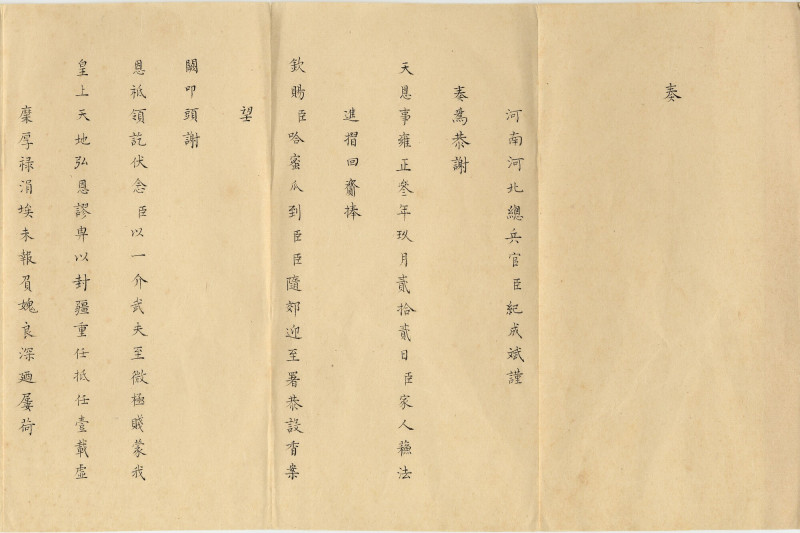 奏
河南河北總兵官臣紀成斌謹
奏爲恭謝
天恩事雍正叄年玖月貳拾貳日臣家人蘓法
進摺回齎捧
欽賜臣哈蜜瓜到臣臣隨郊迎至署恭設香案
望
闕叩頭謝
恩祇領訖伏念臣以一介武夫至微極賤蒙我
皇上天地弘恩謬畀以封疆重任抵任壹載虛
糜厚祿涓埃未報負媿良深廼屢荷